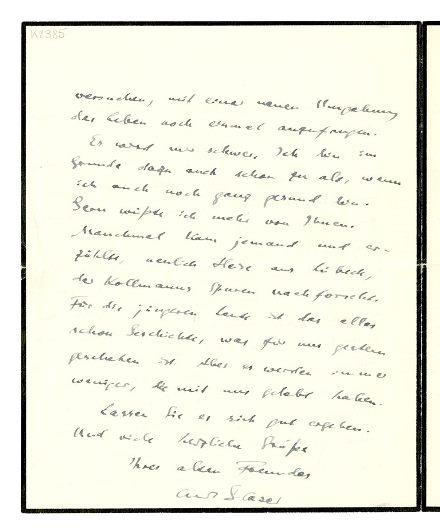 K1385
versuchen, mit einer neuen Umgebung
das Leben noch einmal anzufangen.
Es wird mir schwer. Ich bin im
Grunde dazu auch schon zu alt, wenn
ich auch noch ganz gesund bin.
Gern wüßte ich mehr von Ihnen.
Manchmal kam jemand und er-
zählte, neulich Heise aus Lübeck,
der Kollmanns Spuren nachforscht.
Für die jüngeren Leute ist das alles
schon Geschichte, was für uns gestern
geschehen ist. Aber es werden immer
weniger, die mit uns gelebt haben.
Lassen Sie es sich gut ergehen.
Und viele herzliche Grüße
Ihres alten Freundes
Curt Glaser